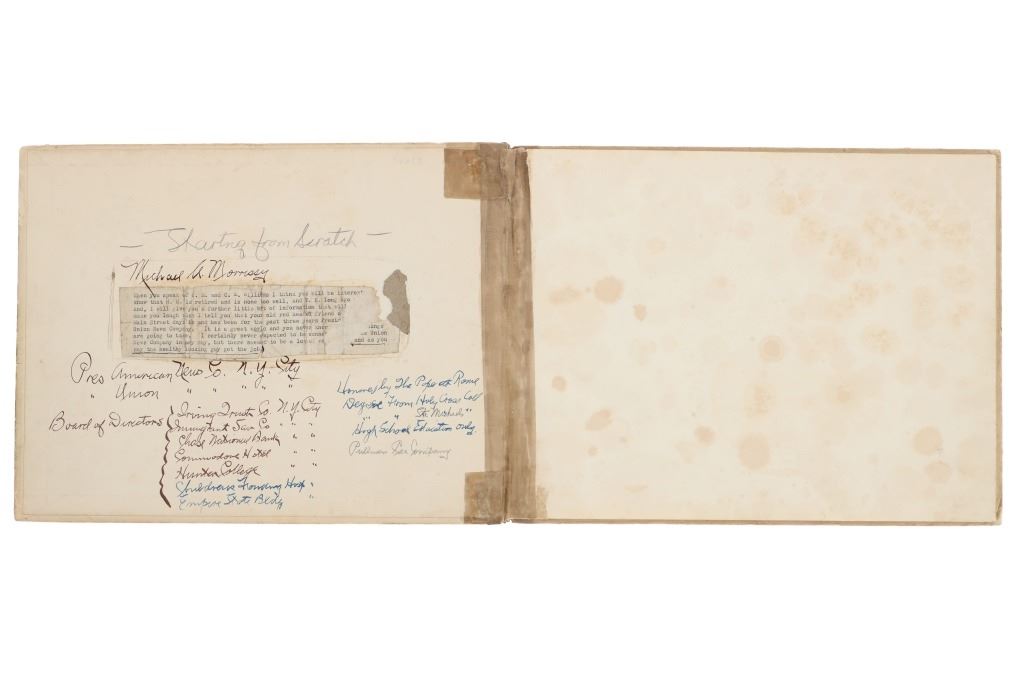 — Starting from Scratch —
Michael A. Morrissey
When you speak of and C. A. Williams I think you will be interest
know that is retired and is none too well, and
and, I will give you a further little bit of information that will
make you laugh when I tell you that your old red headed friend
Main Street days is and has been for the past three years Presi
Union News Company. It is a great world and you never know
are going to take. I certainly never expected to be
News Company in my day, but there seemed to be a lot of
pay the healthy looking guy got the job.
ings
Union
and as you
Pres American News Co. N.Y. City
" Union " " " " "
Board of Directors
Irving Trust Co N.Y. City
Immigrant Sav Co " " "
Chase National Bank " "
Commodore Hotel " "
Hunter College " "
Childrens Founding Hosp "
Empire State Bldg "
Honored by The Pope at Rome
Degree From Holy Cross Coll
" " St. Michaels "
High School Education only
Pullman Car